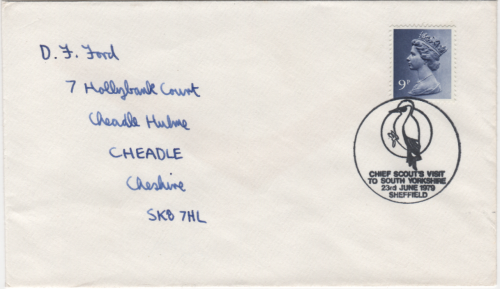 D. F. Ford
7 Hollybank Court
Cheadle Hulme
CHEADLE
Cheshire
SK8 7HL
9P
CHIEF SCOUT'S VISIT
TO SOUTH YORKSHIRE
23rd JUNE 1979
SHEFFIELD